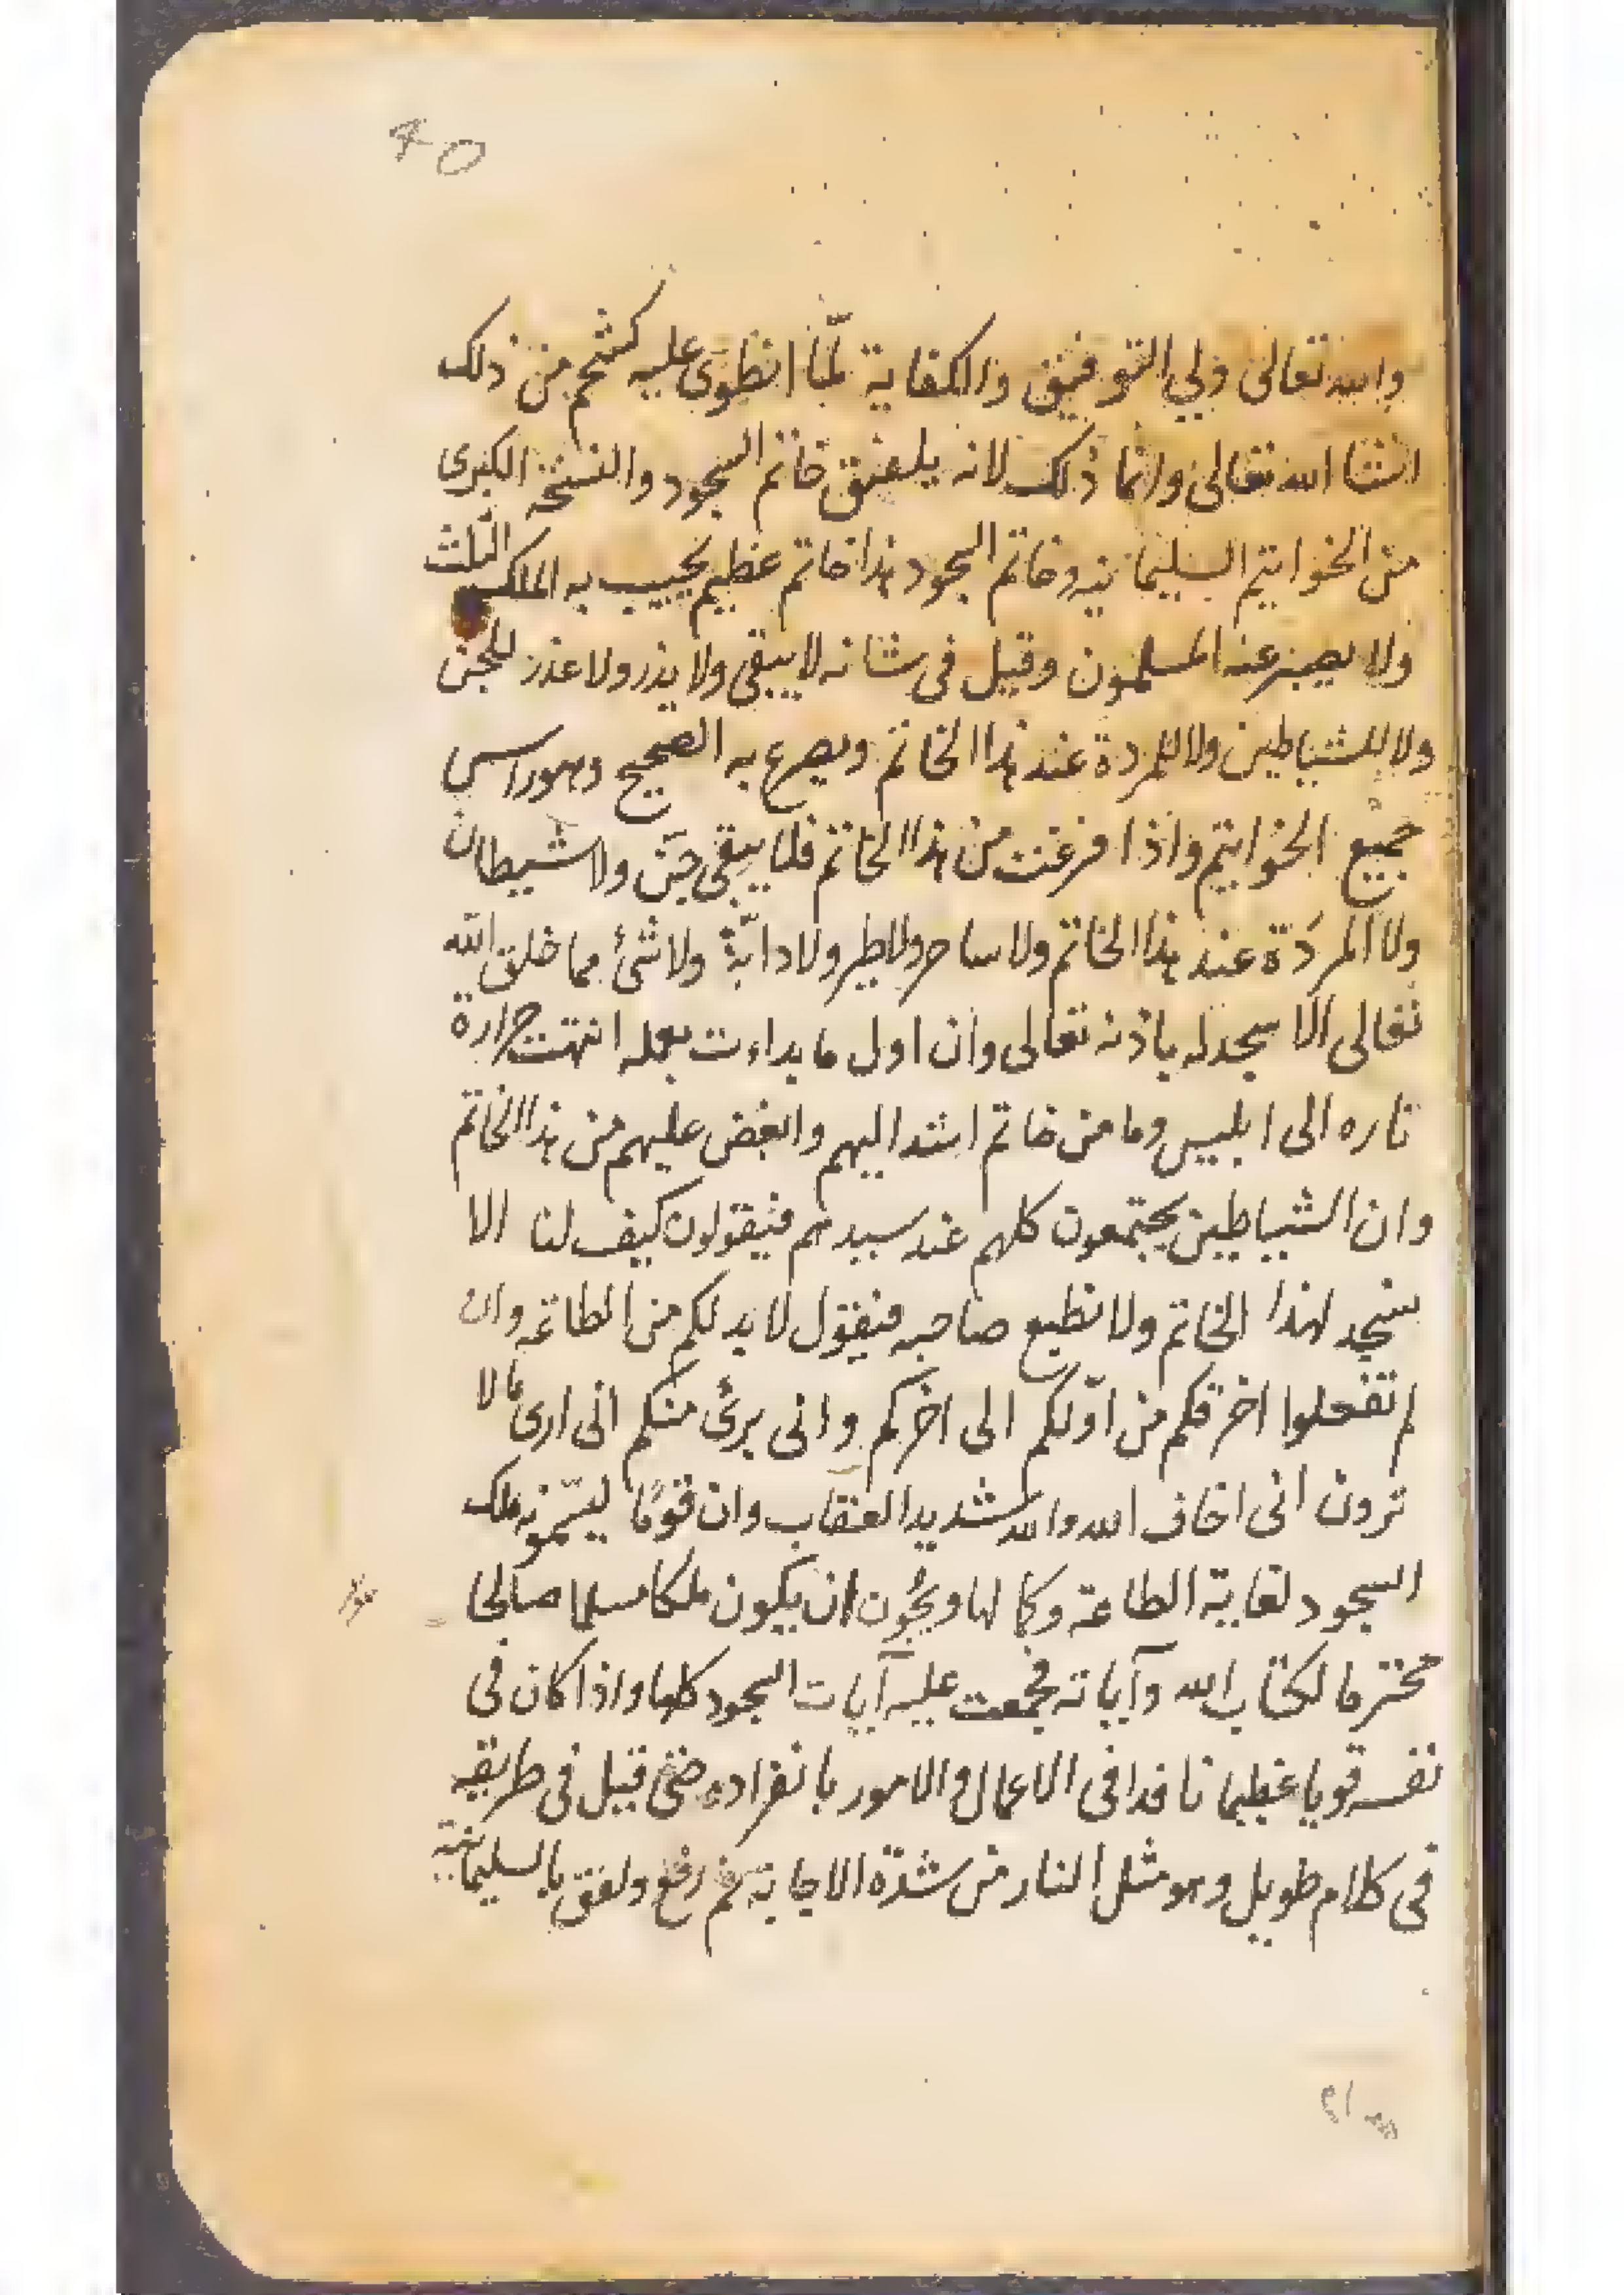 40
والله تعالى ولي التوفيق والكفاية لمّا انطوى عليه كشحم من ذلك
انشا الله تعالى وانما ذلك لانه يلفق خاتم السجود والنسخة الكبرى
من الخواتيم السليمانيه وخاتم السجود هذا خاتم عظيم يجيب به الملك الثلث
ولا يصبر عنه المسلمون وقيل فى شانه لا يبقى ولا يذر ولا عذر للجن
ولا للشياطين ولا للمردة عند هذا الخاتم ويصرع به الصحيح وهو راس
جميع الخواتيم واذا فرغت من هذا الخاتم فلا يبقى جن ولا شيطان
ولا المردّة عند هذا الخاتم ولا ساحر ولا طير ولا دابّة ولا شئ مما خلق الله
تعالى الا سجد له باذنه تعالى وان اول ما بداءت بعمله انتهت حرارة
ناره الى ابليس وما من خاتم اشد اليهم وابغض عليهم من هذا الخاتم
وان الشياطين يجتمعون كلهم عند سيدهم فيقولون كيف لنا الا
نسجد لهذا الخاتم ولا نطيع صاحبه فيقول لا بد لكم من الطاعه وان
لم تفعلوا احرقكم من اوّلكم الى اخركم وانى برئ منكم انى ارى ما لا
ترون انى اخاف الله والله شديد العقاب وان قومًا ليسمّونه ملك
السجود لغاية الطاعة وكمالها ويجوز ان يكون ملكا مسلما صالحا
محترما لكتاب الله وآياته فجمعت عليه آيات السجود كلها واذا كان فى
نفسه قويا عظيما نافدا فى الاعمال والامور بانفراده حتى قيل فى طريقه
فى كلام طويل وهو مثل النار من شدّة الاجابة ثم رفع ولفق بالسليمانية